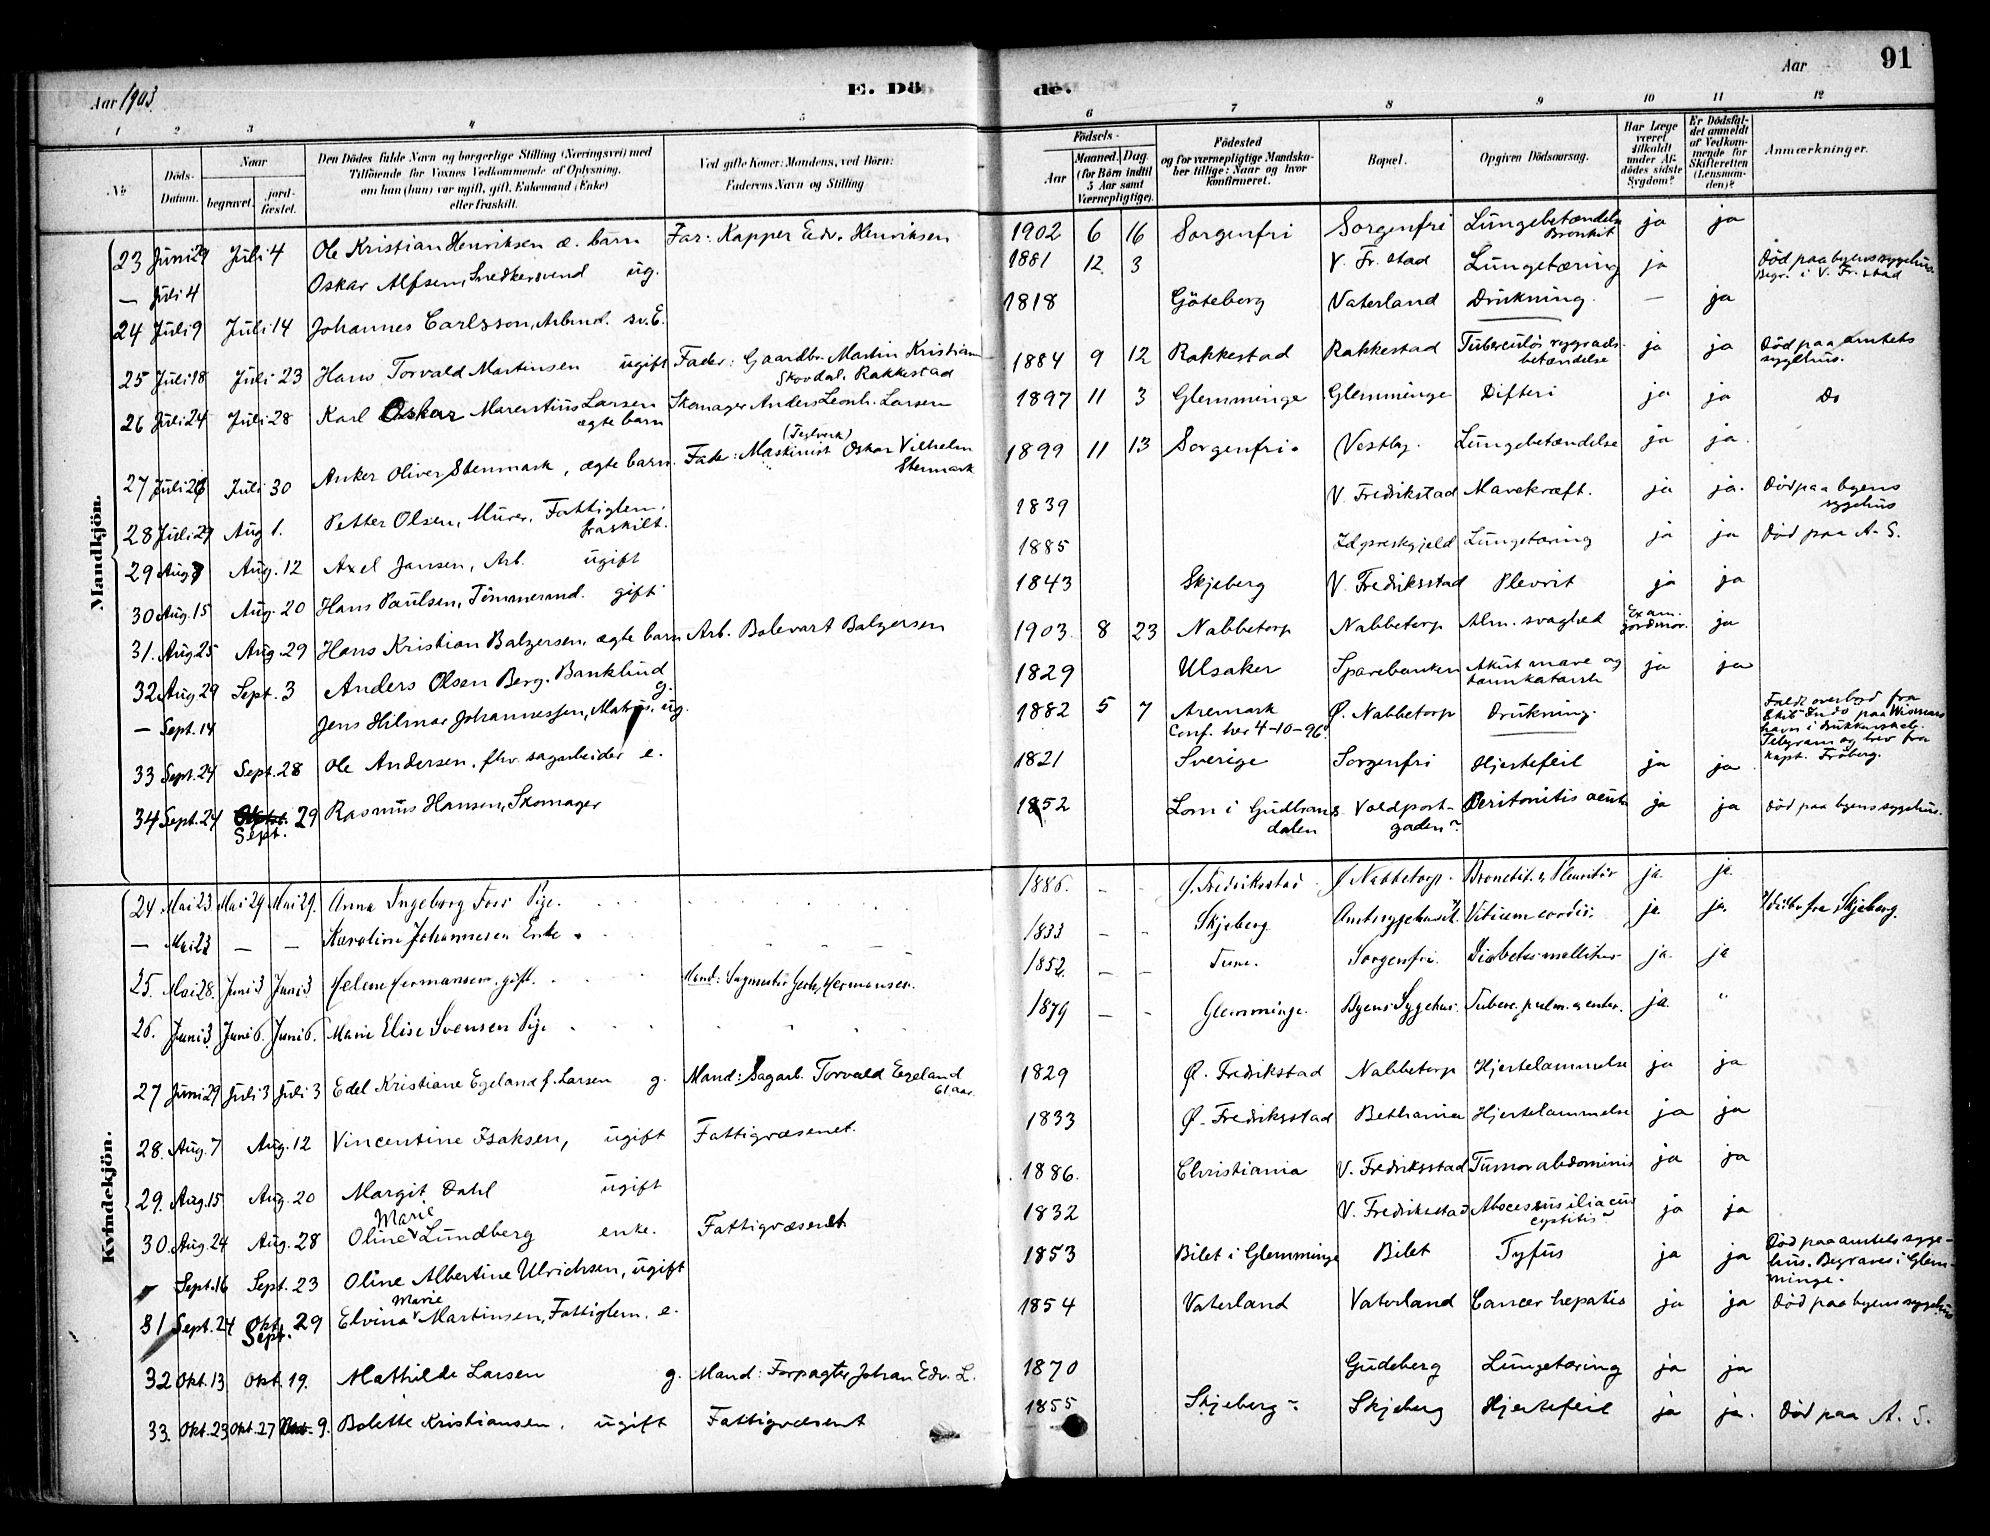 Aar 1903.
E. Dö
de.
Aar
91
1 2 3 4 5
6 7 8 9 10 11 12
No.
Döds-Datum.
Naar
begravet.
jord-fæstet.
Den Dödes fulde Navn og borgerlige Stilling (Næringsvei) med
Tilföiende for Voxnes Vedkommende af Oplysning,
om han (hun) var ugift, gift, Enkemand (Enke)
eller fraskilt.
Ved gifte Koner: Mandens, ved Börn:
Faderens Navn og Stilling
Födsels-
Aar
Maaned. Dag
(for Börn indtil
5 Aar samt
Værnepligtige).
Födested
og for værnepligtige Mandska-
ber tillige: Naar og hvor
konfirmeret.
Bopæl.
Opgiven Dödsaarsag.
Har Læge
været
tilkaldt
under Af-
dödes sidste
Sygdom?
Er Dödsfal-
det anmeldt
af Vedkom-
mende for
Skifteretten
(Lensman-
den)?
Anmærkninger.
Mandkjön.
23 Juni 29 Juli 4 Ole Kristian Henriksen æ. barn Far: Kapper Edv. Henriksen 1902 6 16 Sorgenfri Sorgenfri Lungebetændelse Bronkit ja ja
— Juli 4 Oskar Alfsen, Snedkersvend ug. 1881 12 3 V. Fr.stad Lungetæring ja Död paa byens sygehus. Begr. i V. Fr.stad
24 Juli 9 Juli 14 Johannes Carlsson, Arbmd. sv. E. 1818 Göteborg Vaterland Drukning. — ja
25 Juli 18 Juli 23 Hans Torvald Martinsen ugift Fader: Gaardbr. Martin Kristian Skovdal, Rakkestad 1884 9 12 Rakkestad Rakkestad Tuberculös rygradsbetændelse ja ja Död paa amtets sygehus.
26 Juli 24 Juli 28 Karl Oskar Marentius Larsen ægte barn Skomager Anders Leonh. Larsen 1897 11 3 Glemminge Glemminge Difteri ja ja Do
27 Juli 26 Juli 30 Anker Oliver Stenmark, ægte barn. Fader: Maskinist (Teglverk) Oskar Vilhelm Stenmark 1899 11 13 Sorgenfri. Vestby. Lungebetændelse ja ja.
28 Juli 29 Aug 1. Petter Olsen, Murer, Fattiglem, fraskilt. 1839 V. Fredrikstad Mavekræft. ja ja. Död paa byens sygehus
29 Aug 8 Aug. 12 Axel Jansen, Arb. ugift 1885 Idpræstgjeld Lungetæring ja ja Död paa A. S.
30 Aug. 15 Aug. 20 Hans Paulsen, Tömmermd. gift 1843 Skjeberg V. Fredriksstad Plevrit ja ja
31. Aug. 25 Aug. 29 Hans Kristian Balzersen, ægte barn Arb. Bolevart Balzersen 1903. 8 23 Nabbetorp Nabbetorp Alm. svaghed Exam. jordmor. ja
32 Aug 29 Sept. 3 Anders Olsen Berg. Bankbud g. 1829 Ulsaker Sparebanken Akut mave og tarmkatarrh ja ja
— Sept. 14 Jens Hilmar Johannessen, Matros, ug. 1882 5 7 Aremark Conf. her 4-10-96. Ø. Nabbetorp Drukning. Faldt overbord fra Skib Indo paa Wismars havn i drukkenskab. Telegram og brev fra kapt. Fröberg.
33 Sept. 24 Sept. 28 Ole Andersen, fhv. sagarbeider e. 1821 Sverige Sorgenfri Hjertefeil ja ja
34 Sept. 24 Sept. 29 Rasmus Hansen, Skomager 1852 Lom i Gudbrandsdalen Voldportgaden Peritonitis acuta ja ja Död paa byens sygehus.
Kvindekjön.
24 Mai 23. Mai 29 Mai 29. Anna Ingeborg Foss Pige. 1886. — - Ø. Fredriksstad Ø Nabbetorp. Bronchit. & Pleuritis ja ja.
— Mai 23 — — Karoline Johannesen Enke. 1833 — - Skjeberg Amtssygehuset Vitium cordis. ja ja. fra Skjeberg.
25. Mai 28. Juni 3 Juni 3 Helene Hermansen, gift. Mand: Sagmester Herm. Hermansen. 1852. — - Tune. Sorgenfri. Diabetes mellitus ja. ja
26. Juni 3. Juni 6. Juni 6. Marie Elise Svensen Pige 1879 — - Glemminge. Byens Sygehus. Tuberc. pulm. & enter. ja. "
27 Juni 29 Juli 3 Juli 3 Edel Kristiane Egeland f. Larsen g. Mand: Sagarb. Torvald Egeland 61 aar. 1829 Ø. Fredrikstad Nabbetorp Hjertelammelse ja ja
28. Aug. 7 Aug. 12 Vincentine Isaksen, ugift Fattigvæsenet. 1833 Ø. Fredriksstad Bethania Hjertelammelse ja ja
29. Aug. 15 Aug. 20 Margit Dahl ugift 1886. Christiania V. Fredriksstad Tumor abdominis ja ja
30. Aug. 24 Aug. 28 Oline Marie Lundberg enke. Fattigvæsenet 1832 V. Fredrikstad Abscessus iliacus cystitis ja ja
Sept. 16 Sept. 23 Oline Albertine Ulrichsen, ugift 1853 Bilet i Glemminge Bilet Tyfus ja ja Död paa amtets sygehus. Begraves i Glemminge.
31 Sept. 24 Okt. Sept. 29 Elvina Marie Martinsen, Fattiglem, e. 1854 Vaterland Vaterland Cancer hepatis ja ja Död paa byens sygehus
32 Okt. 13 Okt. 19. Mathilde Larsen g. Mand: Forpagter Johan Edv. L. 1870 Gudeberg Lungetæring ja ja
33. Okt. 23 Okt. 27 Nov. 9. Bolette Kristiansen, ugift Fattigvæsent 1855 Skjeberg Skjeberg Hjertefeil ja ja. Död paa A. S.